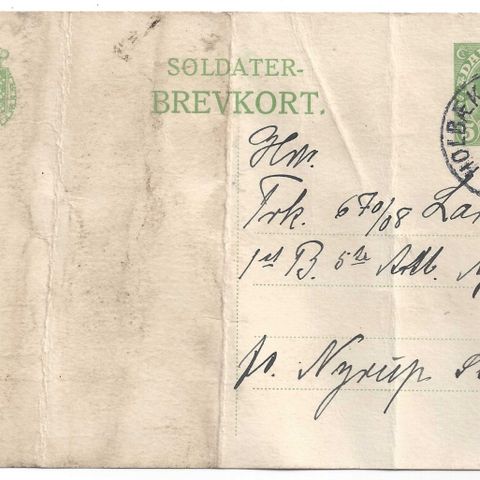 SOLDATER-
BREVKORT.
HOLBÆK
5
Hr.
Trk. 670/08 Lar
1st B. 5te Artl.
pr. Nyrup